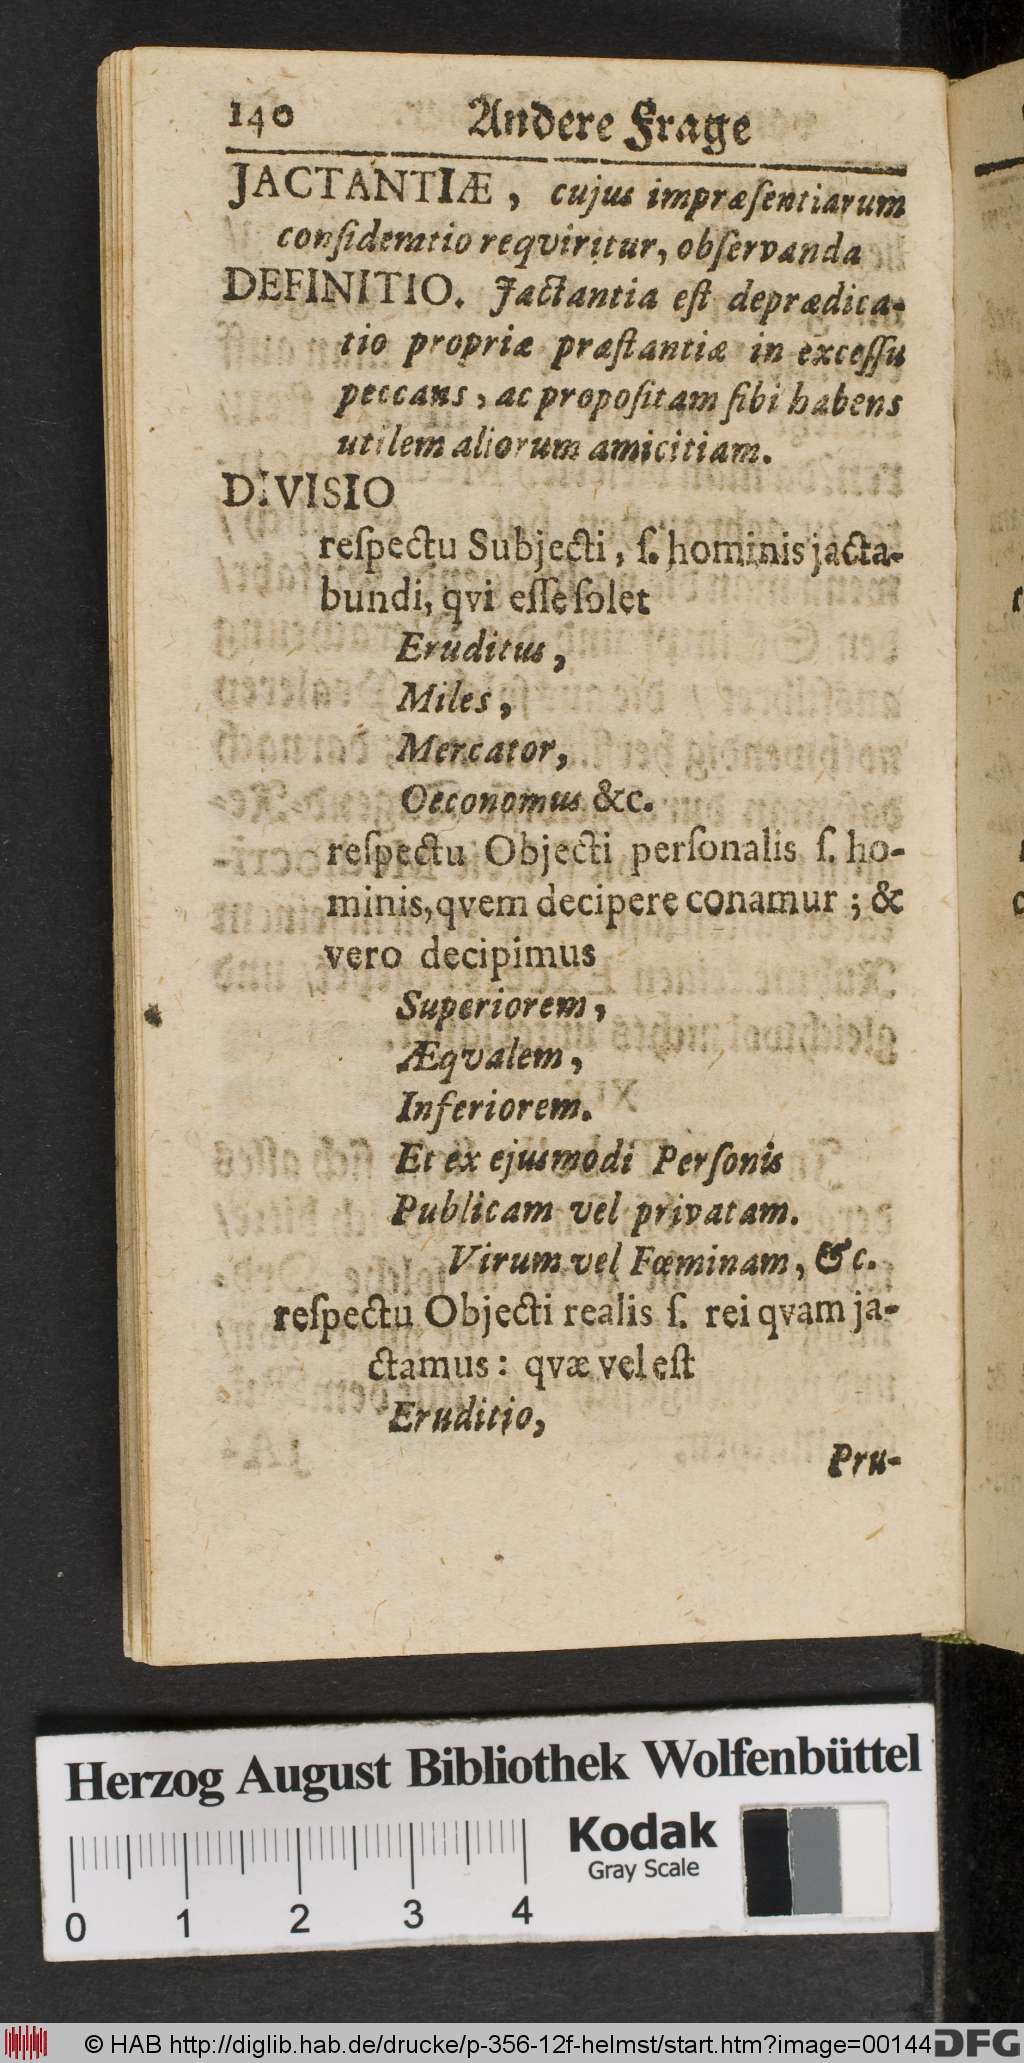 140 Andere Frage
JACTANTIÆ, cujus impræſentiarum
conſideratio reqviritur, obſervanda
DEFINITIO. Jactantia eſt deprædica-
tio propriæ præſtantiæ in exceſſu
peccans, ac propoſitam ſibi habens
utilem aliorum amicitiam.
DIVISIO
reſpectu Subjecti, ſ. hominis jacta-
bundi, qvi eſſe ſolet
Eruditus,
Miles,
Mercator,
Oeconomus &c.
reſpectu Objecti perſonalis ſ. ho-
minis, qvem decipere conamur; &
vero decipimus
Superiorem,
Æqvalem,
Inferiorem.
Et ex ejusmodi Perſonis
Publicam vel privatam.
Virum vel Fœminam, &c.
reſpectu Objecti realis ſ. rei qvam ja-
ctamus: qvæ vel eſt
Eruditio,
Pru-
Herzog August Bibliothek Wolfenbüttel
Kodak
Gray Scale
0 1 2 3 4
© HAB http://diglib.hab.de/drucke/p-356-12f-helmst/start.htm?image=00144 DFG